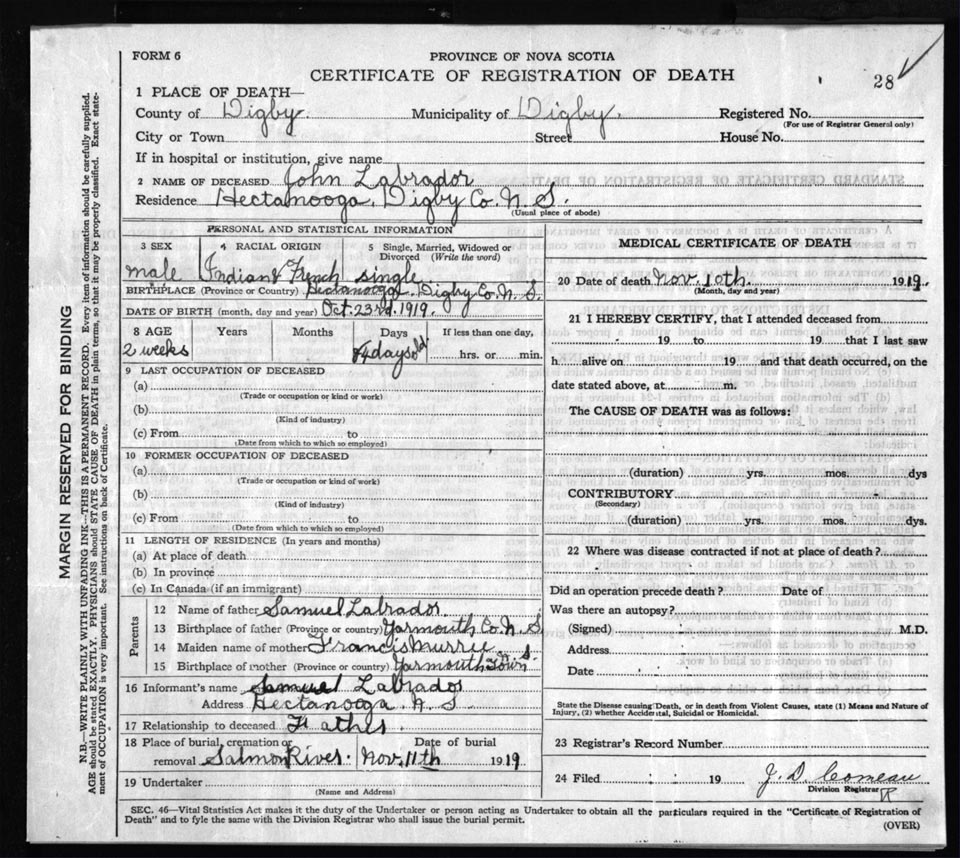 FORM 6
PROVINCE OF NOVA SCOTIA
CERTIFICATE OF REGISTRATION OF DEATH
28
1 PLACE OF DEATH—
County of Digby. Municipality of Digby. Registered No.
(For use of Registrar General only)
City or Town Street House No.
If in hospital or institution, give name
2 NAME OF DECEASED John Labrador
Residence Hectanooga, Digby Co. N. S.
(Usual place of abode)
PERSONAL AND STATISTICAL INFORMATION
3 SEX 4 RACIAL ORIGIN 5 Single, Married, Widowed or Divorced (Write the word)
male Indian & French single
BIRTHPLACE (Province or Country) Hectanooga Digby Co. N. S.
DATE OF BIRTH (month, day and year) Oct. 23rd. 1919.
8 AGE Years Months Days If less than one day,
2 weeks 4 days old hrs. or min.
9 LAST OCCUPATION OF DECEASED
(a)
(Trade or occupation or kind or work)
(b)
(Kind of industry)
(c) From to
(Date from which to which so employed)
10 FORMER OCCUPATION OF DECEASED
(a)
(Trade or occupation or kind of work)
(b)
(Kind of industry)
(c) From to
(Date from which to which so employed)
11 LENGTH OF RESIDENCE (In years and months)
(a) At place of death
(b) In province
(c) In Canada (if an immigrant)
Parents
12 Name of father Samuel Labrador
13 Birthplace of father (Province or country) Yarmouth Co. N. S
14 Maiden name of mother Francis Murree
15 Birthplace of mother (Province or country) Yarmouth Town N. S.
16 Informant's name Samuel Labrador
Address Hectanooga N. S
17 Relationship to deceased Father
18 Place of burial, cremation or removal Salmon River. Date of burial Nov. 11th 1919
19 Undertaker
(Name and Address)
MEDICAL CERTIFICATE OF DEATH
20 Date of death Nov. 10th. 1919.
(Month, day and year)
21 I HEREBY CERTIFY, that I attended deceased from
19 to 19 that I last saw
h alive on 19 and that death occurred, on the
date stated above, at m.
The CAUSE OF DEATH was as follows:
(duration) yrs. mos. dys
CONTRIBUTORY
(Secondary)
(duration) yrs. mos. dys.
22 Where was disease contracted if not at place of death?
Did an operation precede death? Date of
Was there an autopsy?
(Signed) M.D.
Address
Date
State the Disease causing Death, or in death from Violent Causes, state (1) Means and Nature of
Injury, (2) whether Accidental, Suicidal or Homicidal.
23 Registrar's Record Number
24 Filed 19 J. D. Comeau
Division Registrar
SEC. 46—Vital Statistics Act makes it the duty of the Undertaker or person acting as Undertaker to obtain all the particulars required in the "Certificate of Registration of
Death" and to fyle the same with the Division Registrar who shall issue the burial permit.
(OVER)
MARGIN RESERVED FOR BINDING
N.B.—WRITE PLAINLY WITH UNFADING INK—THIS IS A PERMANENT RECORD. Every item of information should be carefully supplied.
AGE should be stated EXACTLY. PHYSICIANS should STATE CAUSE OF DEATH in plain terms, so that it may be properly classified. Exact state-
ment of OCCUPATION is very important. See instructions on back of Certificate.